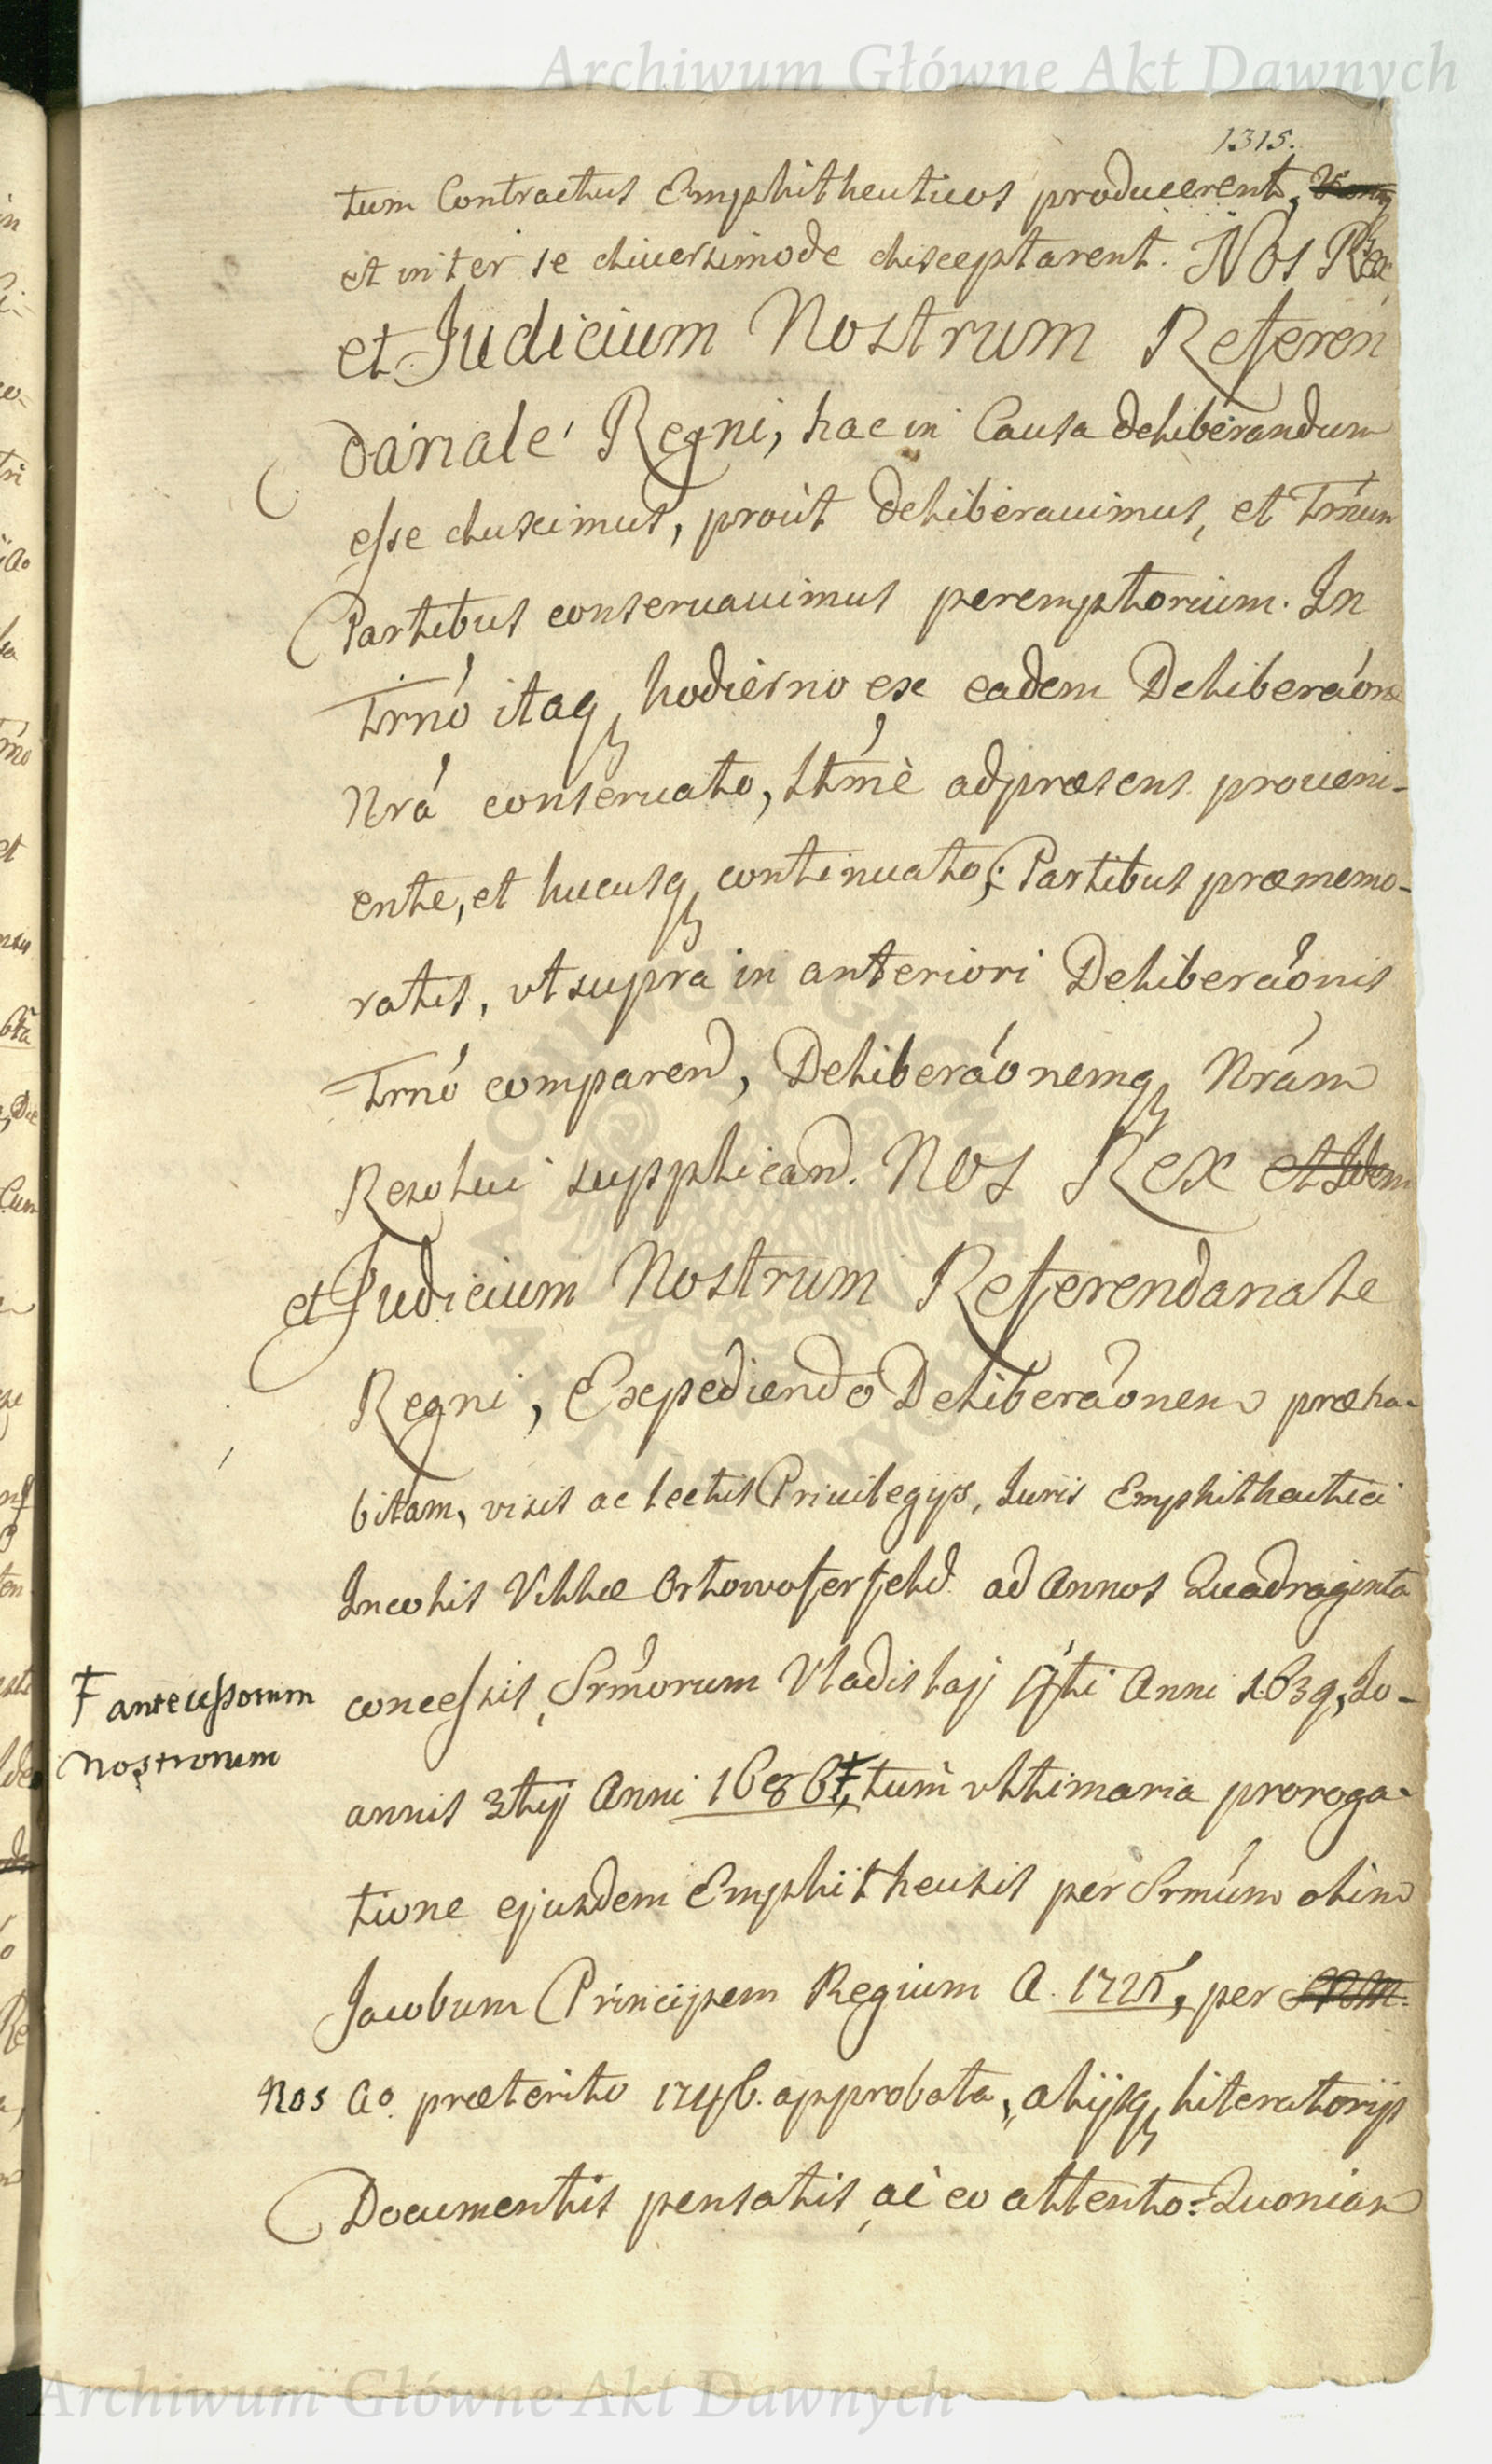 Archiwum Główne Akt Dawnych
1315.
tum Contractus Emphitheuticos producerent,
et inter se diuersimode disceptarent. Nos Rex
et Judicium Nostrum Referen
dariale Regni, hac in Causa deliberandum
esse duximus, proút deliberauimus, et Trńum
Partibus conseruauimus peremptorium. In
Trńo itaq hodierno ex eadem Deliberaóne
Nrá conseruato, Ltt́mè ad præsens proueni-
ente, et hucusq continuato; Partibus præmemo-
ratis, vt supra in anteriori Deliberaónis
Trnó comparen, Deliberaónemq Nrám
Resolui supplican. Nos Rex et Idem
et Judicium Nostrum Referendariale
Regni, Expediendo Deliberaónem præha-
bitam, visis ac lectis Priuilegijs, Iuris Emphitheutici
Incolis Villæ Orlowoferfeld ad Annos Quadraginta
concessis, Srḿorum Vladislaj IVti Anni 1639, Jo-
Ŧ antecessorum
nostrorum
annis 3tij Anni 1686Ŧ, tum vltimaria proroga-
tione ejusdem Emphitheusis per Srmúm olim
Jacobum Principem Regium A. 1725, per
Nos Ao. præterito 1746. approbata, alijsq literatorijs
Documentis pensatis, ac eo attento: Quoniam
Archiwum Główne Akt Dawnych